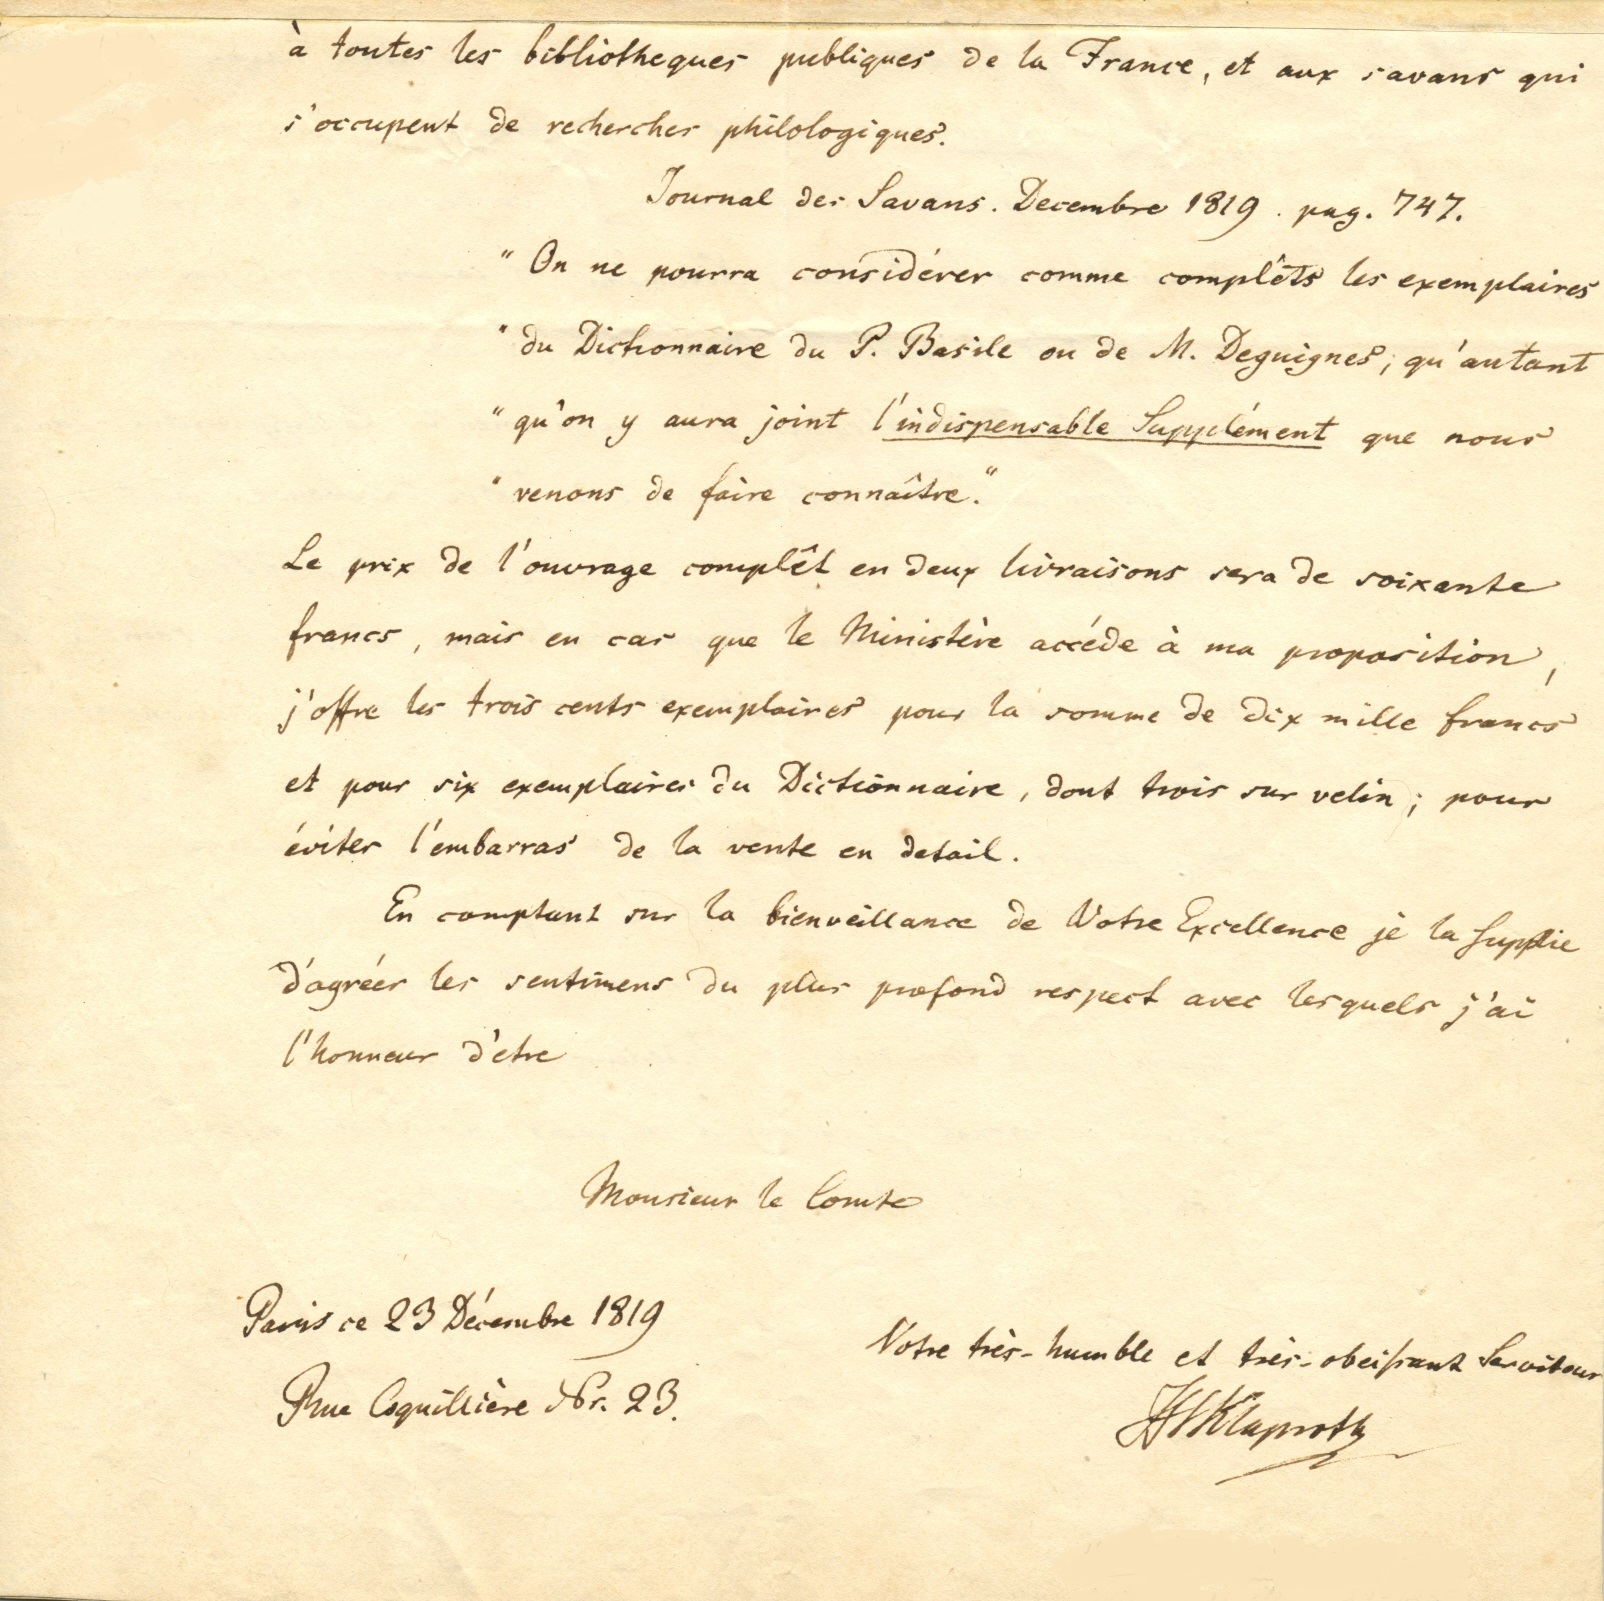 à toutes les bibliotheques publiques de la France, et aux savans qui
s'occupent de recherches philologiques.
Journal des Savans. Decembre 1819. pag. 747.
" On ne pourra considérer comme complêts les exemplaires
" du Dictionnaire du P. Basile ou de M. Deguignes, qu'autant
" qu'on y aura joint l'indispensable Supplément que nous
" venons de faire connaître."
Le prix de l'ouvrage complêt en deux livraisons sera de soixante
francs, mais en cas que le Ministère accéde à ma proposition,
j'offre les trois cents exemplaires pour la somme de dix mille francs
et pour six exemplaires du Dictionnaire, dont trois sur velin; pour
éviter l'embarras de la vente en detail.
En comptant sur la bienveillance de Votre Excellence je la supplie
d'agréer les sentimens du plus profond respect avec lesquels j'ai
l'honneur d'etre
Monsieur le Comte
Paris ce 23 Décembre 1819
Rue Coquillière Nr. 23.
Votre très-humble et très-obeissant Serviteur
Klaproth